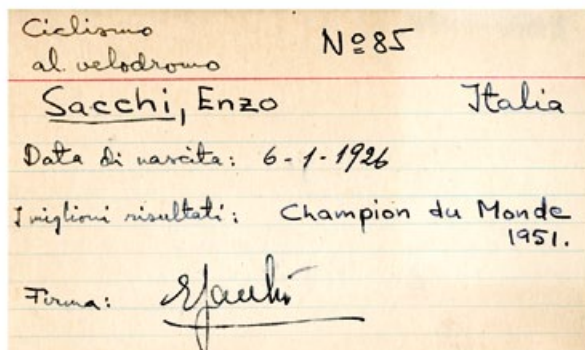 Ciclismo
al velodromo
Nº 85
Sacchi, Enzo Italia
Data di nascita: 6-1-1926
I migliori risultati: Champion du Monde
1951.
Firma: ESacchi